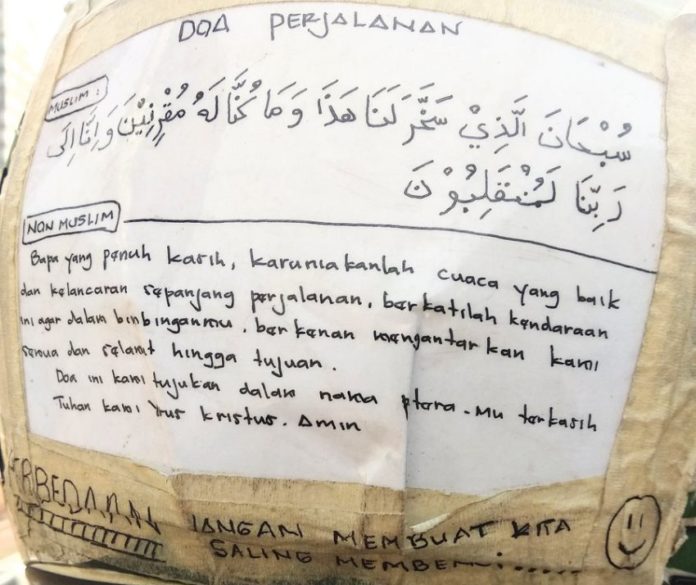 DOA PERJALANAN
MUSLIM :
سُبْحَانَ الَّذِيْ سَخَّرَ لَنَا هَذَا وَمَا كُنَّا لَهُ مُقْرِنِيْنَ وَاِنَّا اِلَى
رَبِّنَا لَمُنْقَلِبُوْنَ
NON MUSLIM
Bapa yang penuh kasih, karuniakanlah cuaca yang baik
dan kelancaran sepanjang perjalanan. berkatilah kendaraan
ini agar dalam binbinganmu. berkenan mengantarkan kami
semua dan selamat hingga tujuan.
Doa ini kami tujukan dalam nama ptera-Mu terkasih
Tuhan kami Yesus kristus. Amin
PERBEDAAN JANGAN MEMBUAT KITA
SALING MEMBENCI.....